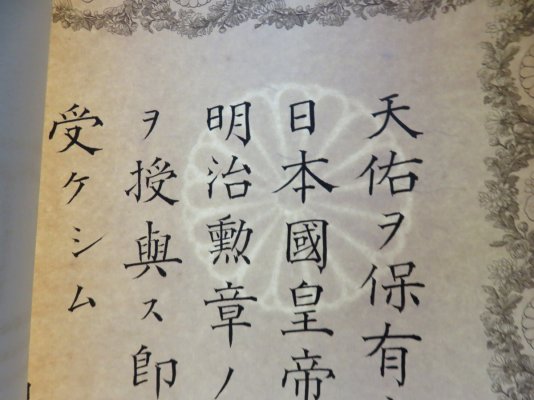 天佑ヲ保有
日本國皇帝
明治勳章ノ
ヲ授與ス即
受ケシム